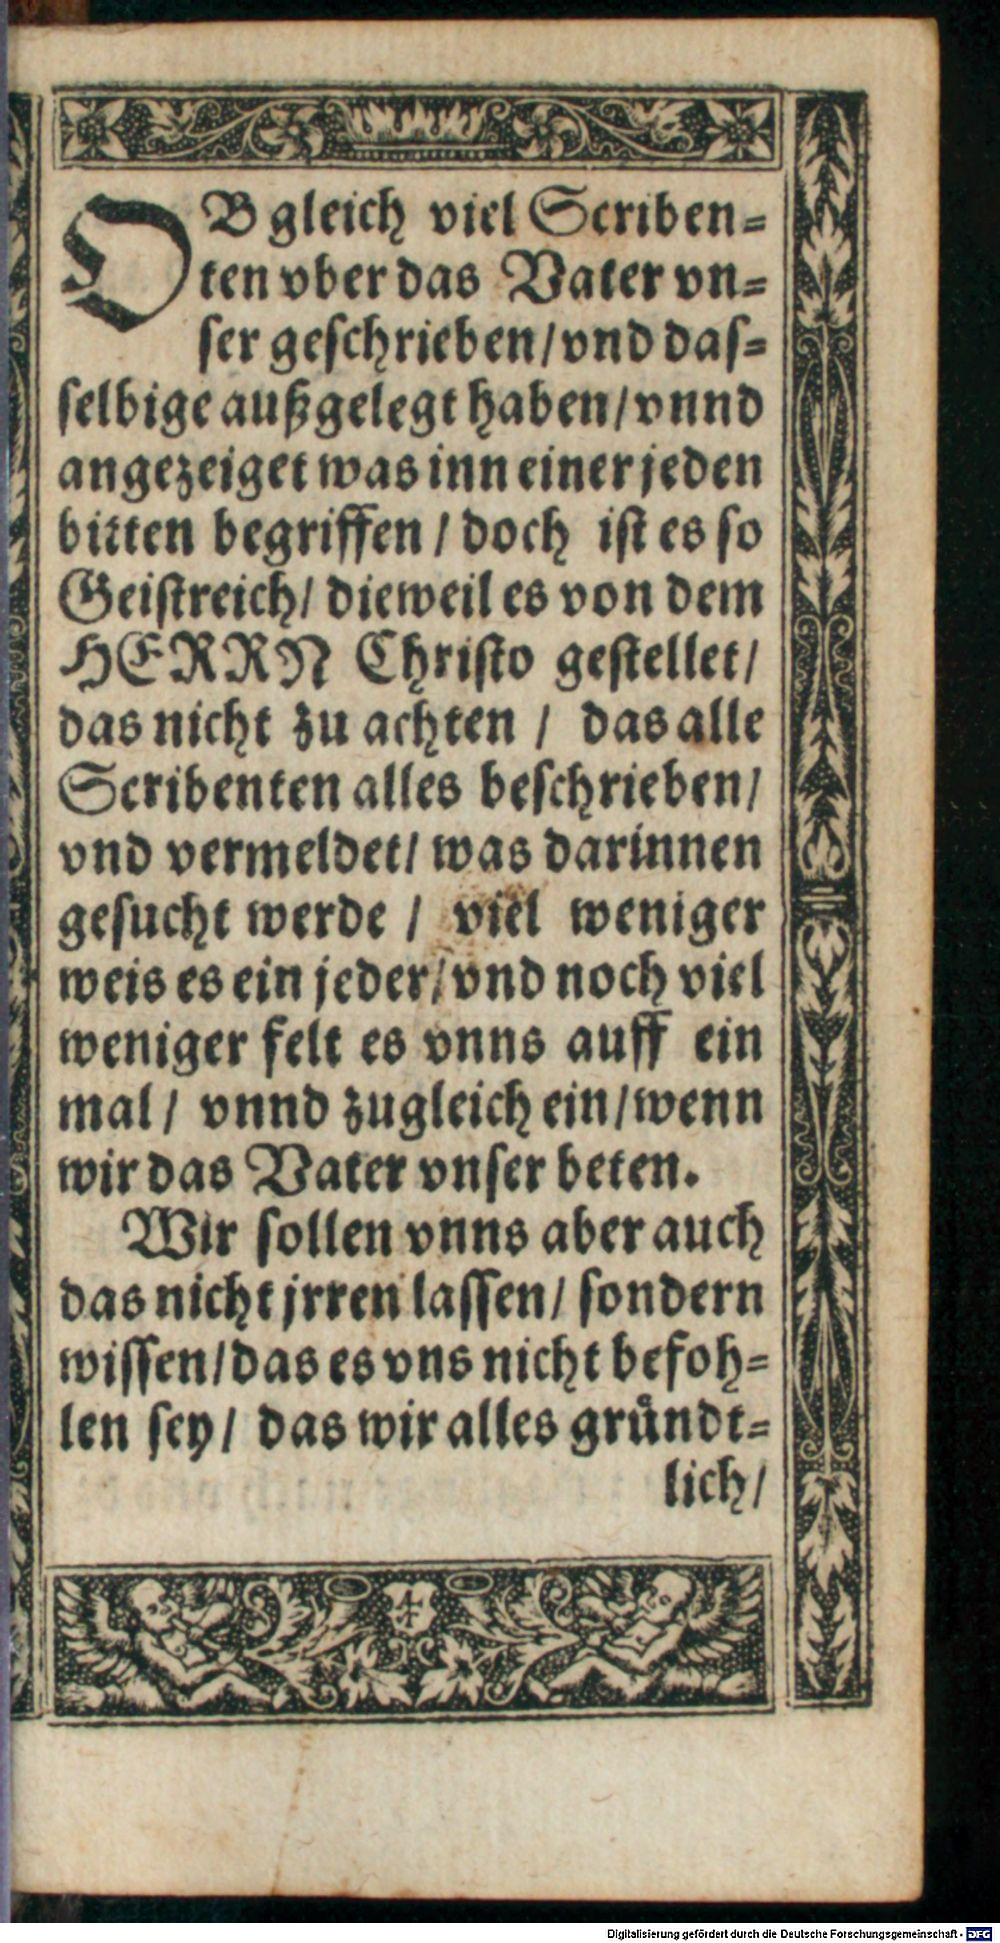 OB gleich viel Scriben⸗
ten vber das Vater vn⸗
ser geschrieben/ vnd das⸗
selbige außgelegt haben/ vnnd
angezeiget was inn einer jeden
bitten begriffen / doch ist es so
Geistreich/ dieweil es von dem
HERRN Christo gestellet/
das nicht zu achten / das alle
Scribenten alles beschrieben/
vnd vermeldet/ was darinnen
gesucht werde / viel weniger
weis es ein jeder/ vnd noch viel
weniger felt es vnns auff ein
mal/ vnnd zugleich ein/ wenn
wir das Vater vnser beten.
Wir sollen vnns aber auch
das nicht jrren lassen/ sondern
wissen/ das es vns nicht befoh⸗
len sey/ das wir alles gründt⸗
lich/
Digitalisierung gefördert durch die Deutsche Forschungsgemeinschaft - DFG